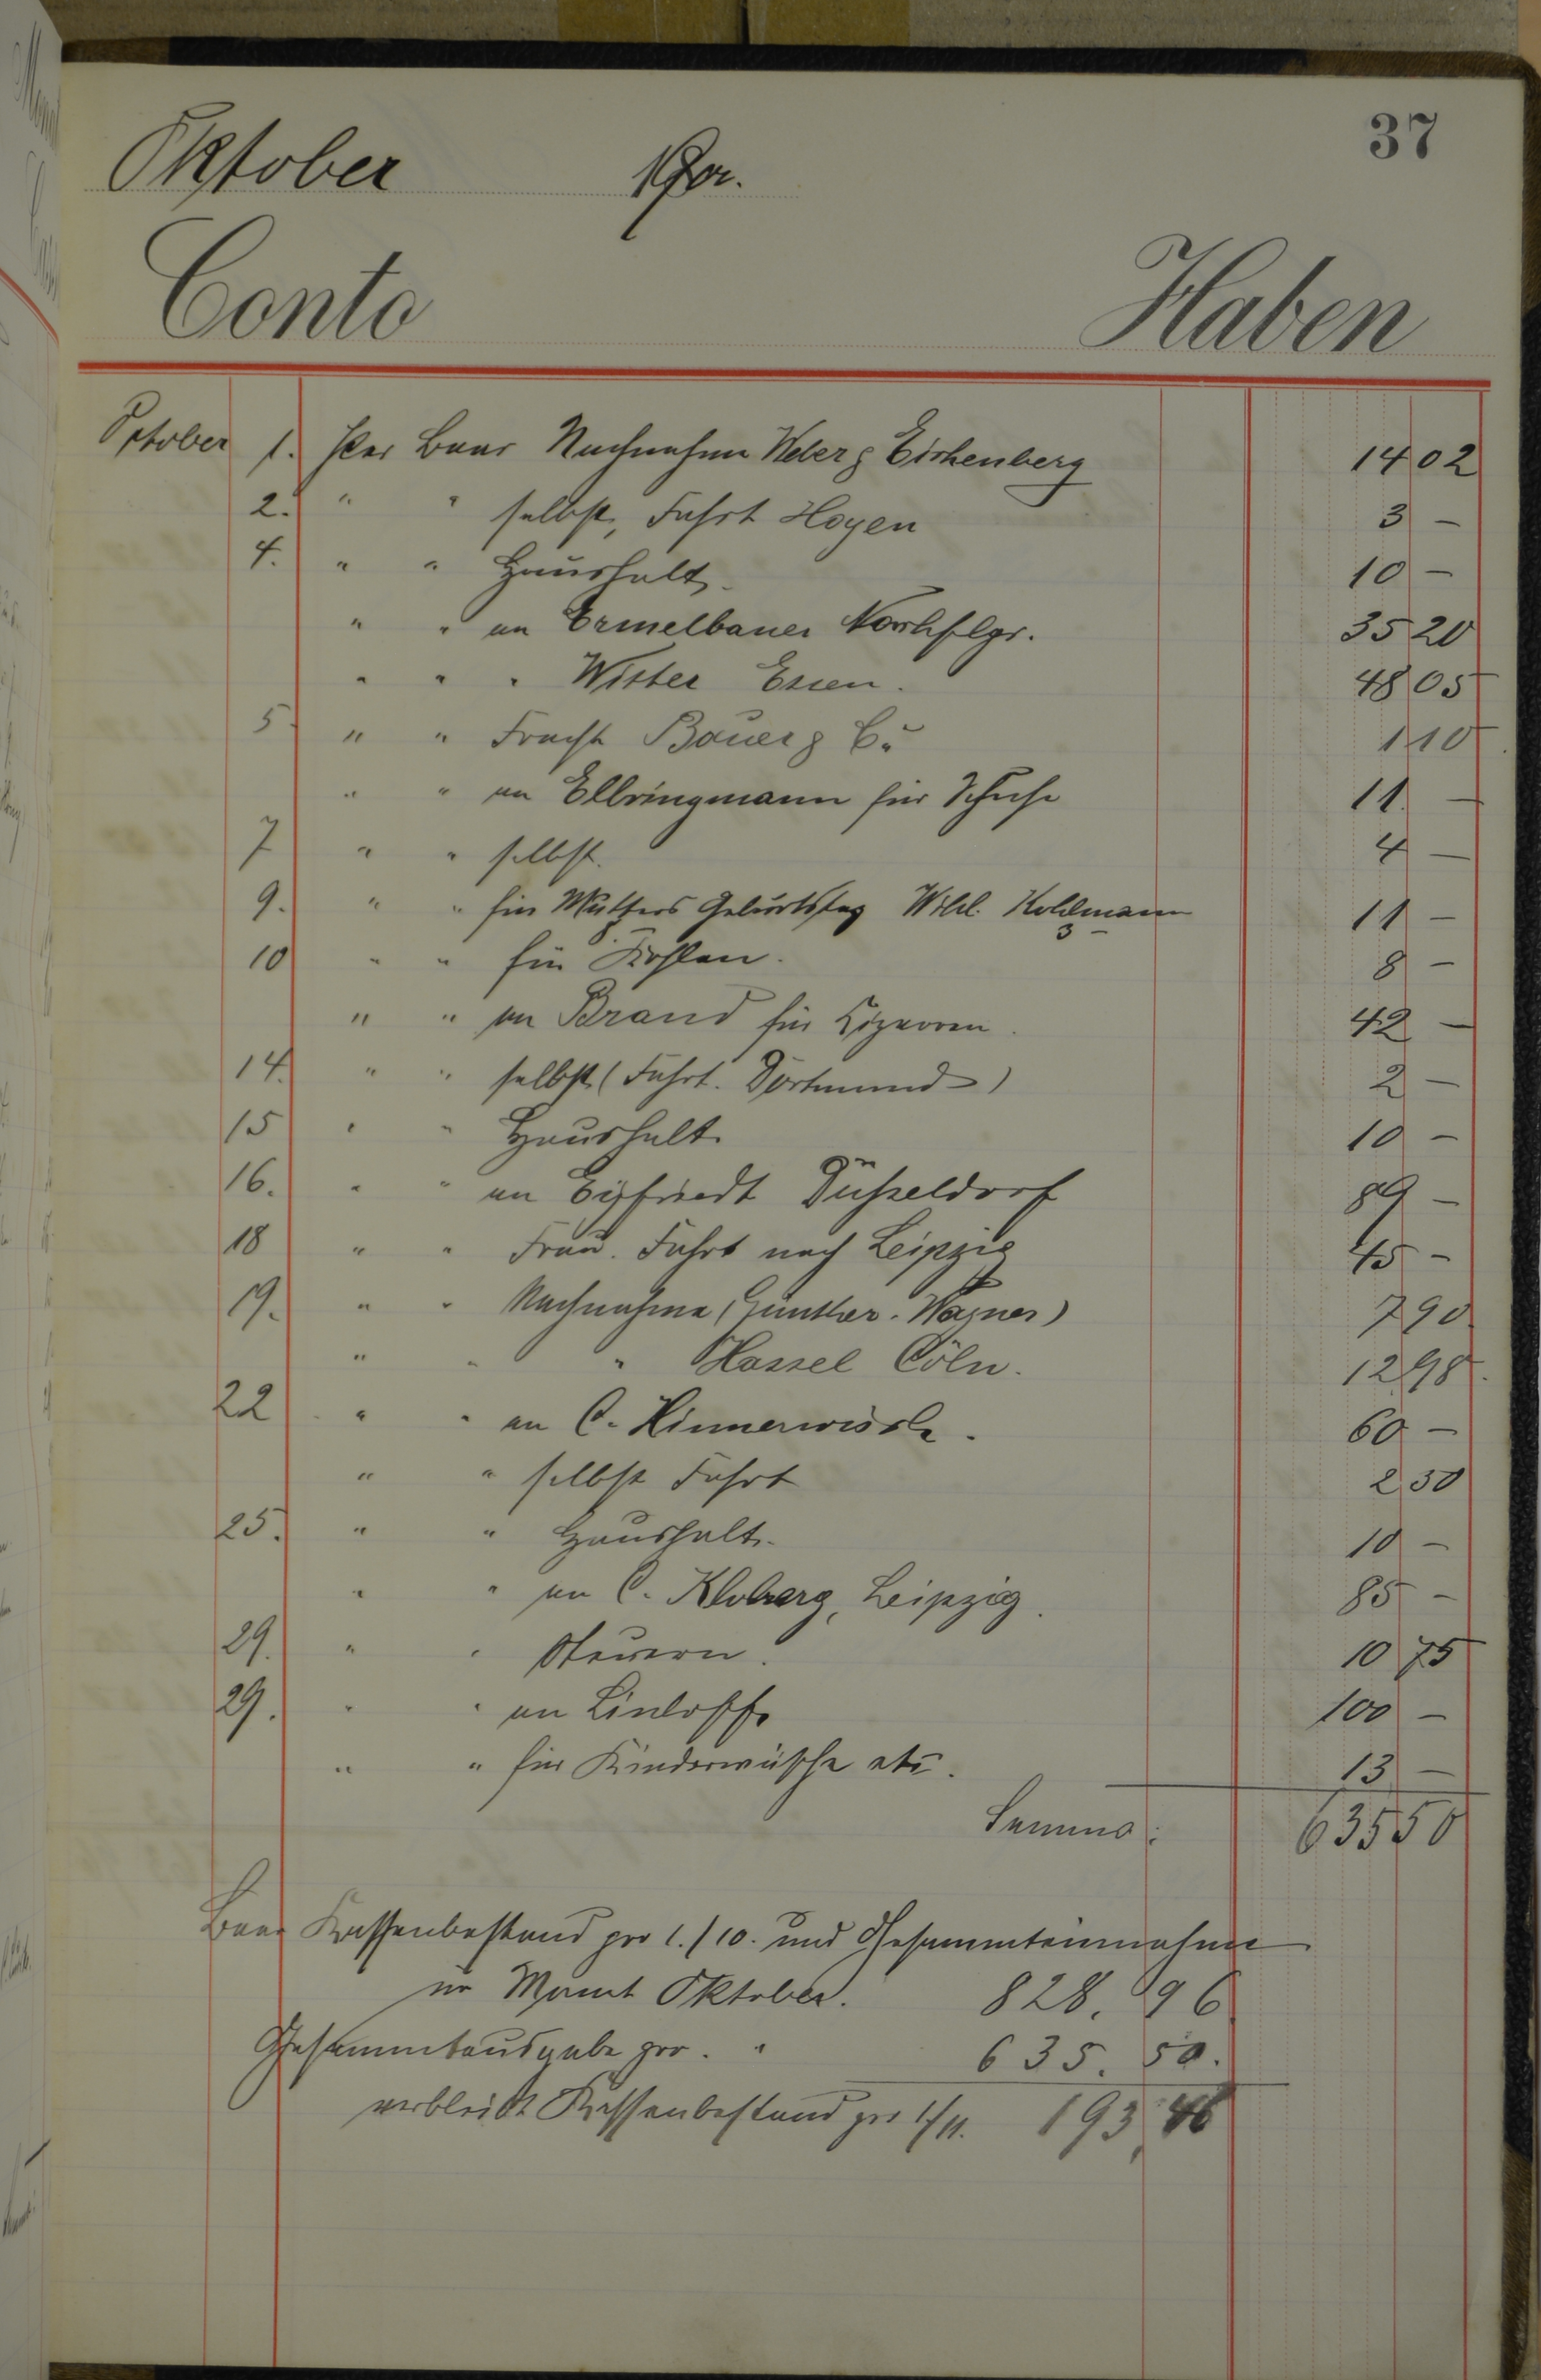 37
Oktober 190
Conto Haben
October 1. Per Baar Nachnahme Weber & Eichenberg 14 02
2. " " selbst, Fahrt Hagen 3 —
4. " " Haushalt. 10 —
" " an Ermelbauer Nachflgr. 35 20
" " " Wister Essen. 48 05
5 " " Fracht Bauer & Co 1 10
" " an Ellringmann für Schuhe 11 —
7 " " selbst. 4 —
9. " " für Mutters Geburtstag Wilh. Kohlmann 3 — 11 —
10 " " für Kohlen. 8 —
" " an Brand für Cigarren. 42 —
14. " " selbst (Fahrt. Dortmund) 2 —
15 " " Haushalt. 10 —
16. " " an Düsseldorf 89 —
18 " " Frau. Fahrt nach Leipzig 45 —
19. " " Nachnahme (Günther. Wagner) 7 90
" " " Hassel Cöln. 12 98
22 " " an C. 60 —
" " selbst Fahrt 2 50
25. " " Haushalt. 10 —
" " an C. Kloberg, Leipzig. 85 —
29. " " Steuern. 10 75
29. " " an 100 —
" " für Kinderwäsche etc. 13 —
Summa: 635 50
Baar Kassenbestand pro 1./10. und Gesammteinnahme
im Monat Oktober. 828. 96
Gesammtausgabe pro. " 635. 50.
verbleibt Kassenbestand pro 1/11. 193,46